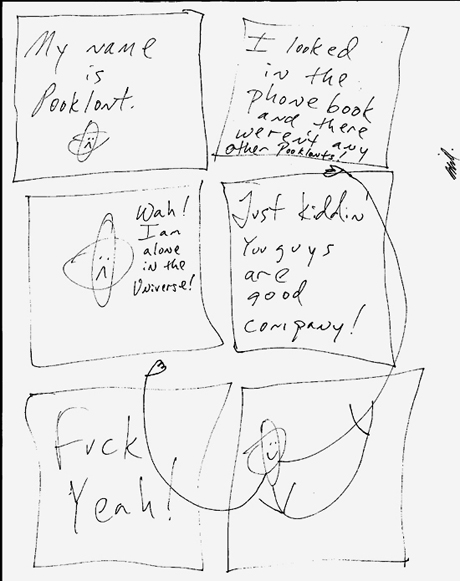 My name
is
Pooklont.
I looked
in the
phone book
and there
weren't any
other Pooklonts!
Wah!
I am
alone
in the
Universe!
Just kiddin'
You guys
are
good
company!
Fuck
Yeah!